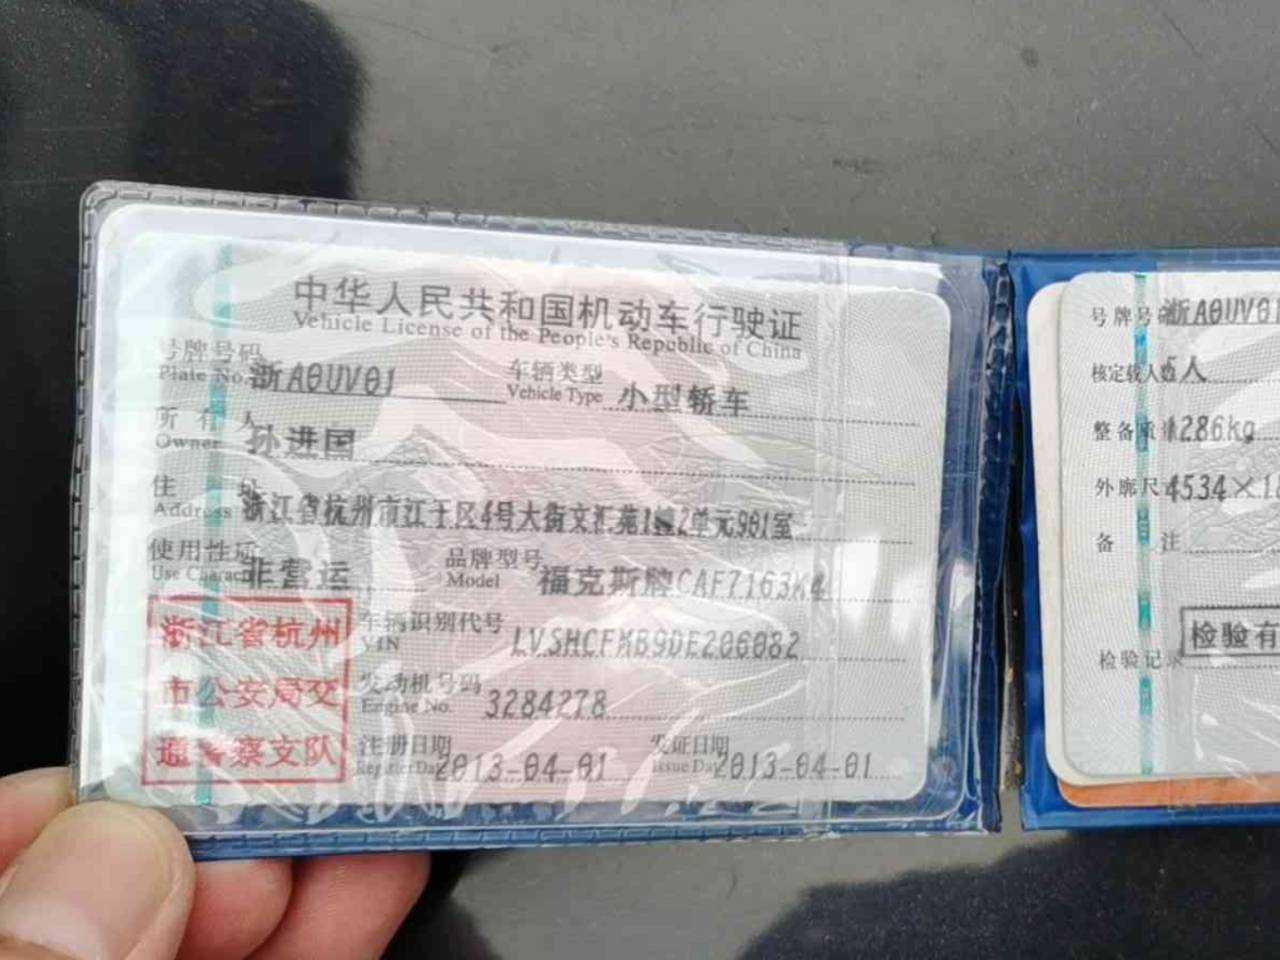 中华人民共和国机动车行驶证
Vehicle License of the People's Republic of China
号牌号码 浙A0UV01 车辆类型 小型轿车
Plate No. Vehicle Type
所有人 孙进国
Owner
住址 浙江省杭州市江干区4号大街文汇苑1幢2单元901室
Address
使用性质 非营运 品牌型号 福克斯牌CAF7163K4
Use Charact Model
浙江省杭州市公安局交通警察支队
车辆识别代号 LVSHCFMB9DE206082
VIN
发动机号码 3284278
Engine No.
注册日期 2013-04-01 发证日期 2013-04-01
Register Da Issue Da
号牌号码 浙A0UV01
核定载人数 5人
整备质量 1286kg
外廓尺 4534×18
备注
检验记录 检验有